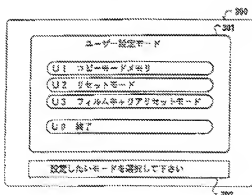 300
301
ユーザー設定モード
U1 コピーモードメモリ
U2 リセットモード
U3 フィルムキャリアリセットモード
U9 終了
設定したいモードを選択して下さい
302